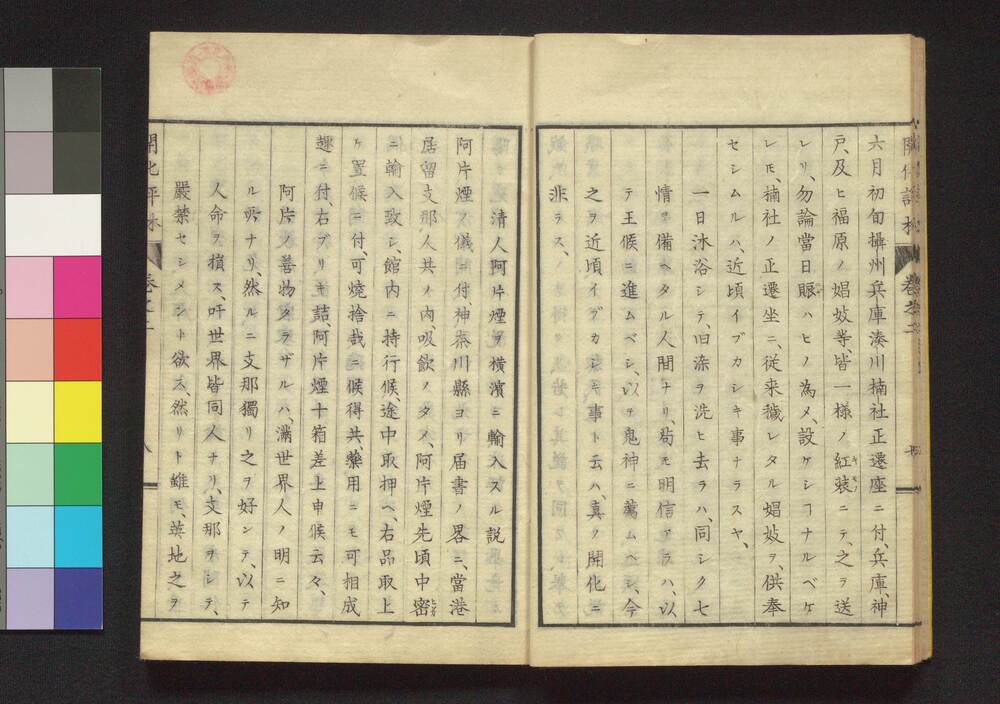 六月初旬攝州兵庫湊川楠社正遷座ニ付、兵庫、神
戸、及ヒ福原ノ娼妓等、皆一様ノ紅裝ニテ、之ヲ送
レリ、勿論當日賑ハヒノ為メ、設ケシヿナルベケ
レ𪜈、楠社ノ正遷坐ニ、従来穢レタル娼妓ヲ、供奉
セシムルハ、近頃イブカシキ事ナラスヤ、
一日沐浴シテ、旧染ヲ洗ヒ去ラハ、同シク七
情ヲ備ヘタル人間ナリ、苟モ明信アラハ、以
テ王候ニ進ムベシ、以テ鬼神ニ薦ムヘシ、今
之ヲ近頃イブカシキ事ト云ハ、真ノ開化ニ
非ラス、
清人阿片煙ヲ横濱ニ輸入スル説
阿片煙ノ儀ニ付、神奈川縣ヨリ届書ノ畧ニ、當港
居留支那人共ノ内、吸飲ノタメ、阿片煙先頃中密
ニ輸入致シ、館内ニ持行候、途中取押ヘ、右品取上
ケ置候ニ付、可燒捨哉ニ候得共、藥用ニモ可相成
趣ニ付、右ブリキ詰、阿片煙十箱差上申候云々、
阿片ノ善物タラザルハ、滿世界人ノ明ニ知
ル所ナリ、然ルニ支那獨リ之ヲ好ンテ、以テ
人命ヲ損ス、吁世界皆同人ナリ、支那ヲシテ、
嚴禁セシメント欲ス、然リト雖モ、英地之ヲ
開化評林
卷之二